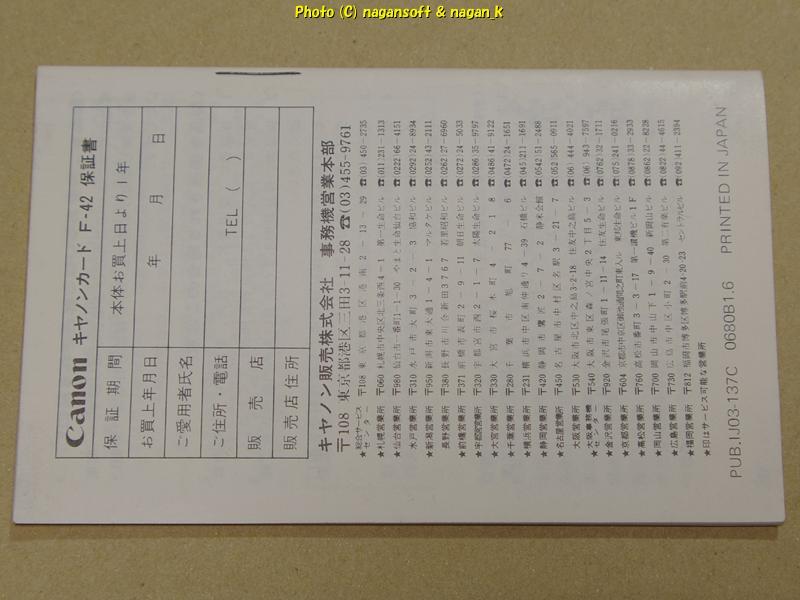 Photo (C) nagansoft & nagan_k
Canon キヤノンカード F-42 保証書
保証期間 本体お買上日より1年
お買上年月日 年 月 日
ご愛用者氏名
ご住所・電話 TEL ( )
販売店
販売店住所
キヤノン販売株式会社 事務機営業本部
〒108 東京都港区三田3-11-28 ☎(03)455-9761
★総合サービスセンター 〒108 東京都港区港南2-13-29 ☎(03)450-2735
★札幌営業所 〒060 札幌市中央区北三条西4-1 第一生命ビル ☎011(231)1313
★仙台営業所 〒980 仙台市一番町1-1-30 やまと生命仙台ビル ☎0222(66)4151
水戸営業所 〒310 水戸市大町3-2-3 協和ビル ☎0292(24)8934
★新潟営業所 〒950 新潟市東大通1-4-1 マルタケビル ☎0252(43)2111
長野営業所 〒380 長野市川合新田3767 若里昭和ビル ☎0262(27)6960
★前橋営業所 〒371 前橋市表町2-9-11 朝日生命ビル ☎0272(24)5033
★宇都宮営業所 〒320 宇都宮市西2-1-7 太陽生命ビル ☎0286(35)9797
★大宮営業所 〒330 大宮市桜木町4-218 ☎0486(41)9122
★千葉営業所 〒280 千葉市旭町77-6 ☎0472(24)1651
★横浜営業所 〒231 横浜市中区南仲通り4-39 石橋ビル ☎045(211)1691
★静岡営業所 〒420 静岡市鷹沢2-7-2 静米会館 ☎0542(51)2488
★名古屋営業所 〒450 名古屋市中村区名駅3-21-7 ☎052(565)0911
大阪営業所 〒530 大阪市北区中之島3-2-18 住友中之島ビル ☎(06)444-4021
★大阪事務機センター 〒540 大阪市東区森ノ宮中央2丁目5-3 ☎(06)943-7597
★金沢営業所 〒920 金沢市尾張町1-11-14 住友生命ビル ☎0762(32)1711
★京都営業所 〒604 京都市中京区御池通間之町東入ル 東邦生命ビル ☎075(241)0216
★高松営業所 〒760 高松市番町3-3-17 第一讃機ビル1F ☎0878(33)2933
★岡山営業所 〒700 岡山市中山下1-9-40 新岡山ビル ☎0862(22)8228
★広島営業所 〒730 広島市中区小町2-30 第二有楽ビル ☎0822(44)4615
★福岡営業所 〒812 福岡市博多区博多駅前4-20-23 セントラルビル ☎092(411)2394
★印はサービス可能な営業所
PUB.IJ03-137C 0680B1.6 PRINTED IN JAPAN